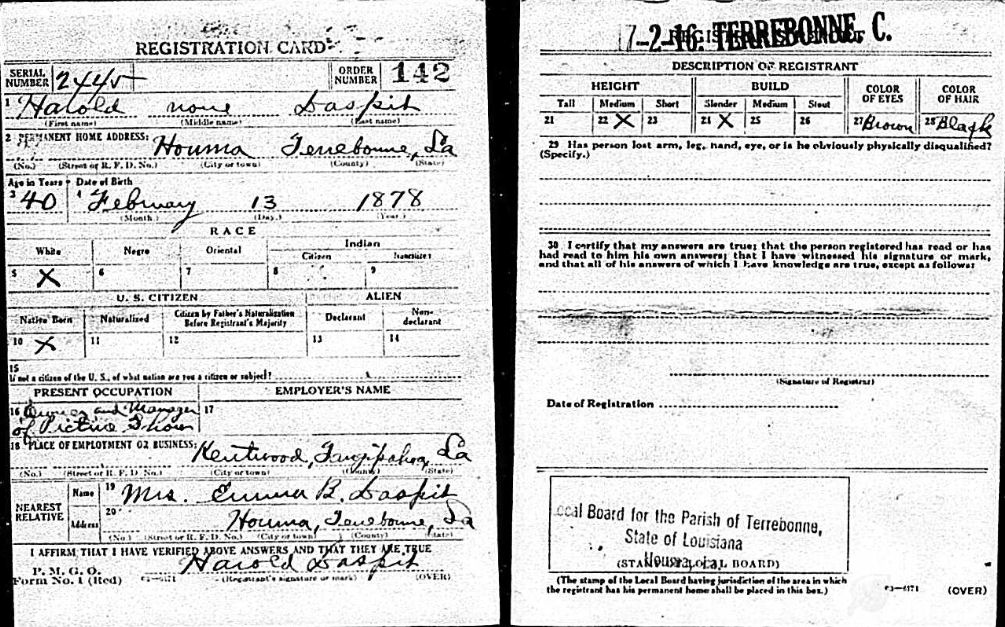 REGISTRATION CARD
SERIAL NUMBER 2440
ORDER NUMBER 142
1 Harold none Daspit
(First name) (Middle name) (Last name)
2 PERMANENT HOME ADDRESS:
Houma Terrebonne, La
(No.) (Street or R. F. D. No.) (City or town) (County) (State)
Age in Years Date of Birth
3 40 4 February 13 1878
(Month.) (Day.) (Year.)
RACE
White Negro Oriental Indian
Citizen Noncitizen
5 X 6 7 8 9
U. S. CITIZEN ALIEN
Native Born Naturalized Citizen by Father's Naturalization Before Registrant's Majority Declarant Non-declarant
10 X 11 12 13 14
15
If not a citizen of the U. S., of what nation are you a citizen or subject?
PRESENT OCCUPATION EMPLOYER'S NAME
16 Owner and Manager 17
of Picture Show
18 PLACE OF EMPLOYMENT OR BUSINESS:
Kentwood, Tangipahoa, La
(No.) (Street or R. F. D. No.) (City or town) (County) (State)
NEAREST RELATIVE
Name 19 Mrs. Emma B. Daspit
Address 20 Houma, Terrebonne, La
(No.) (Street or R. F. D. No.) (City or town) (County) (State)
I AFFIRM THAT I HAVE VERIFIED ABOVE ANSWERS AND THAT THEY ARE TRUE
P. M. G. O.
Form No. 1 (Red)
Harold Daspit
(Registrant's signature or mark) (OVER)
17-2-16. TERREBONNE, C.
DESCRIPTION OF REGISTRANT
HEIGHT BUILD COLOR OF EYES COLOR OF HAIR
Tall Medium Short Slender Medium Stout
21 22 X 23 24 X 25 26 27 Brown 28 Black
29 Has person lost arm, leg, hand, eye, or is he obviously physically disqualified?
(Specify.)
30 I certify that my answers are true; that the person registered has read or has
had read to him his own answers; that I have witnessed his signature or mark,
and that all of his answers of which I have knowledge are true, except as follows:
(Signature of Registrar)
Date of Registration
Local Board for the Parish of Terrebonne,
State of Louisiana
Houma, La.
(STAMP OF LOCAL BOARD)
(The stamp of the Local Board having jurisdiction of the area in which
the registrant has his permanent home shall be placed in this box.)
63—6171 (OVER)